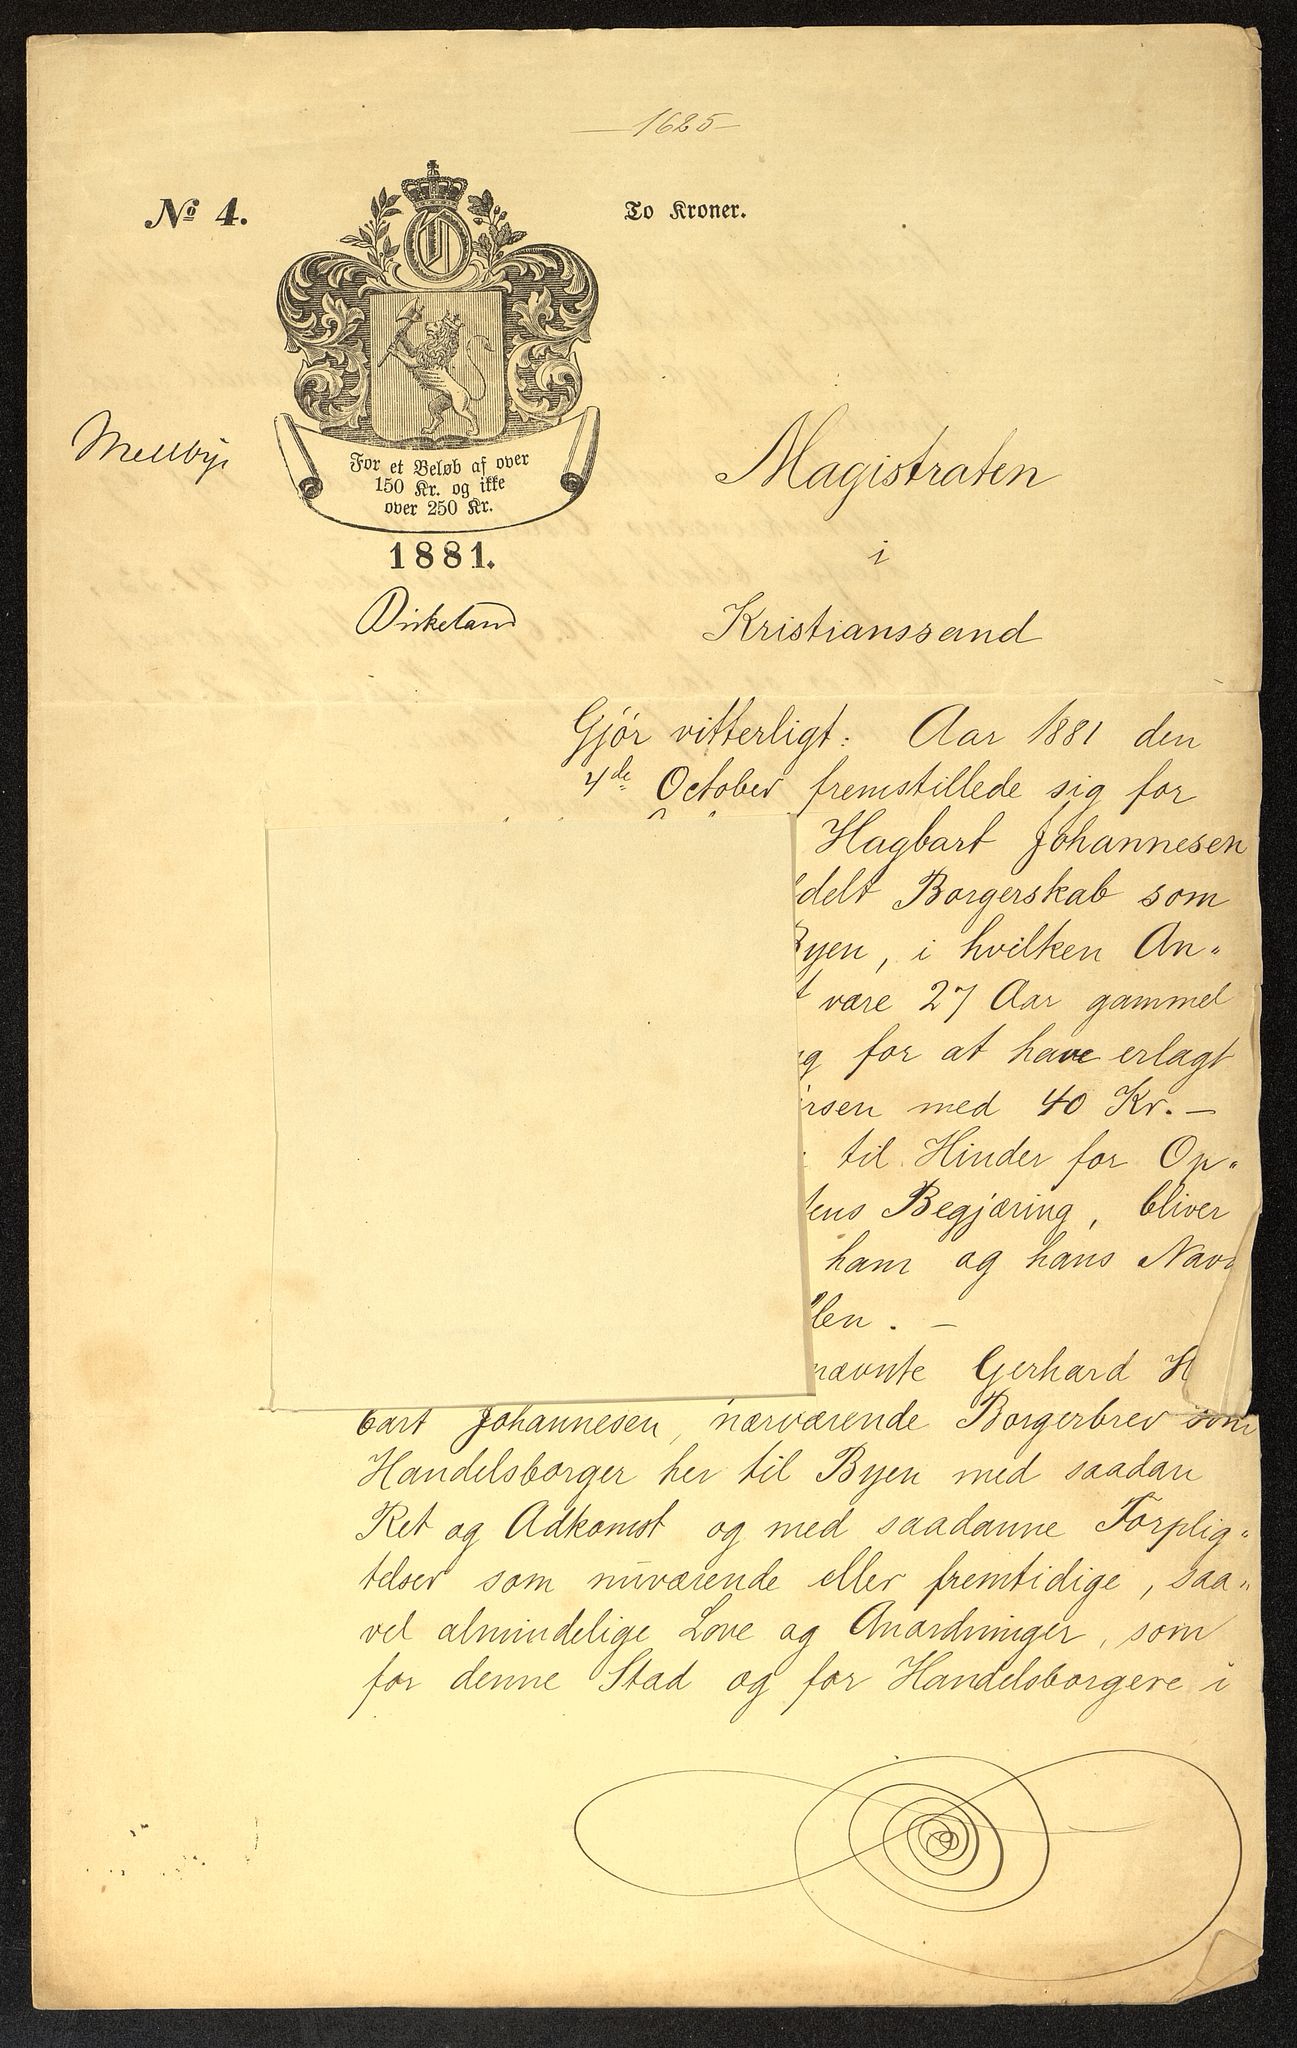 1685
No 4.
To Kroner.
For et Beløb af over
150 Kr. og ikke
over 250 Kr.
1881.
Magistraten
i
Kristianssand
Gjør vitterligt: Aar 1881 den
4de October fremstillede sig for
Hagbart Johannesen
delt Borgerskab som
Byen, i hvilken An-
være 27 Aar gammel
for at have erlagt
rsen med 40 Kr. —
til Hinder for Op-
tens Begjæring, bliver
ham og hans Navn
len. —
nævnte Gerhard H
bart Johannesen, nærværende Borgerbrev som
Handelsborger her til Byen med saadan
Ret og Adkomst og med saadanne Forplig-
telser som nuværende eller fremtidige, saa-
vel almindelige Love og Anordninger, som
for denne Stad og for Handelsborgere i